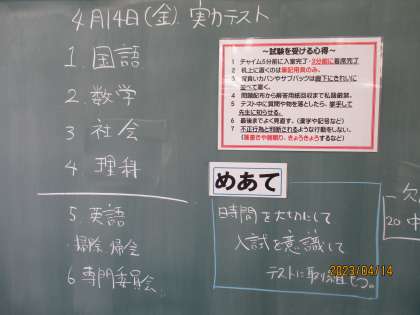 4月14日(金) 実力テスト
1. 国語
2. 数学
3 社会
4. 理科
5 英語
・掃除 帰会
6 専門委員会
～試験を受ける心得～
1 チャイム5分前に入室完了・3分前に着席完了
2 机上に置くのは筆記用具のみ。
3 背負いカバンやサブバッグは廊下にきれいに並べて置く。
4 問題配布から解答用紙回収まで私語厳禁。
5 テスト中に質問や物を落としたら、挙手して先生に知らせる。
6 最後までよく見直す。(漢字や記号など)
7 不正行為と判断されるような行動をしない。
めあて
時間を大切にして
入試を意識して
テストに取り組もう。
2023/04/14
20 中